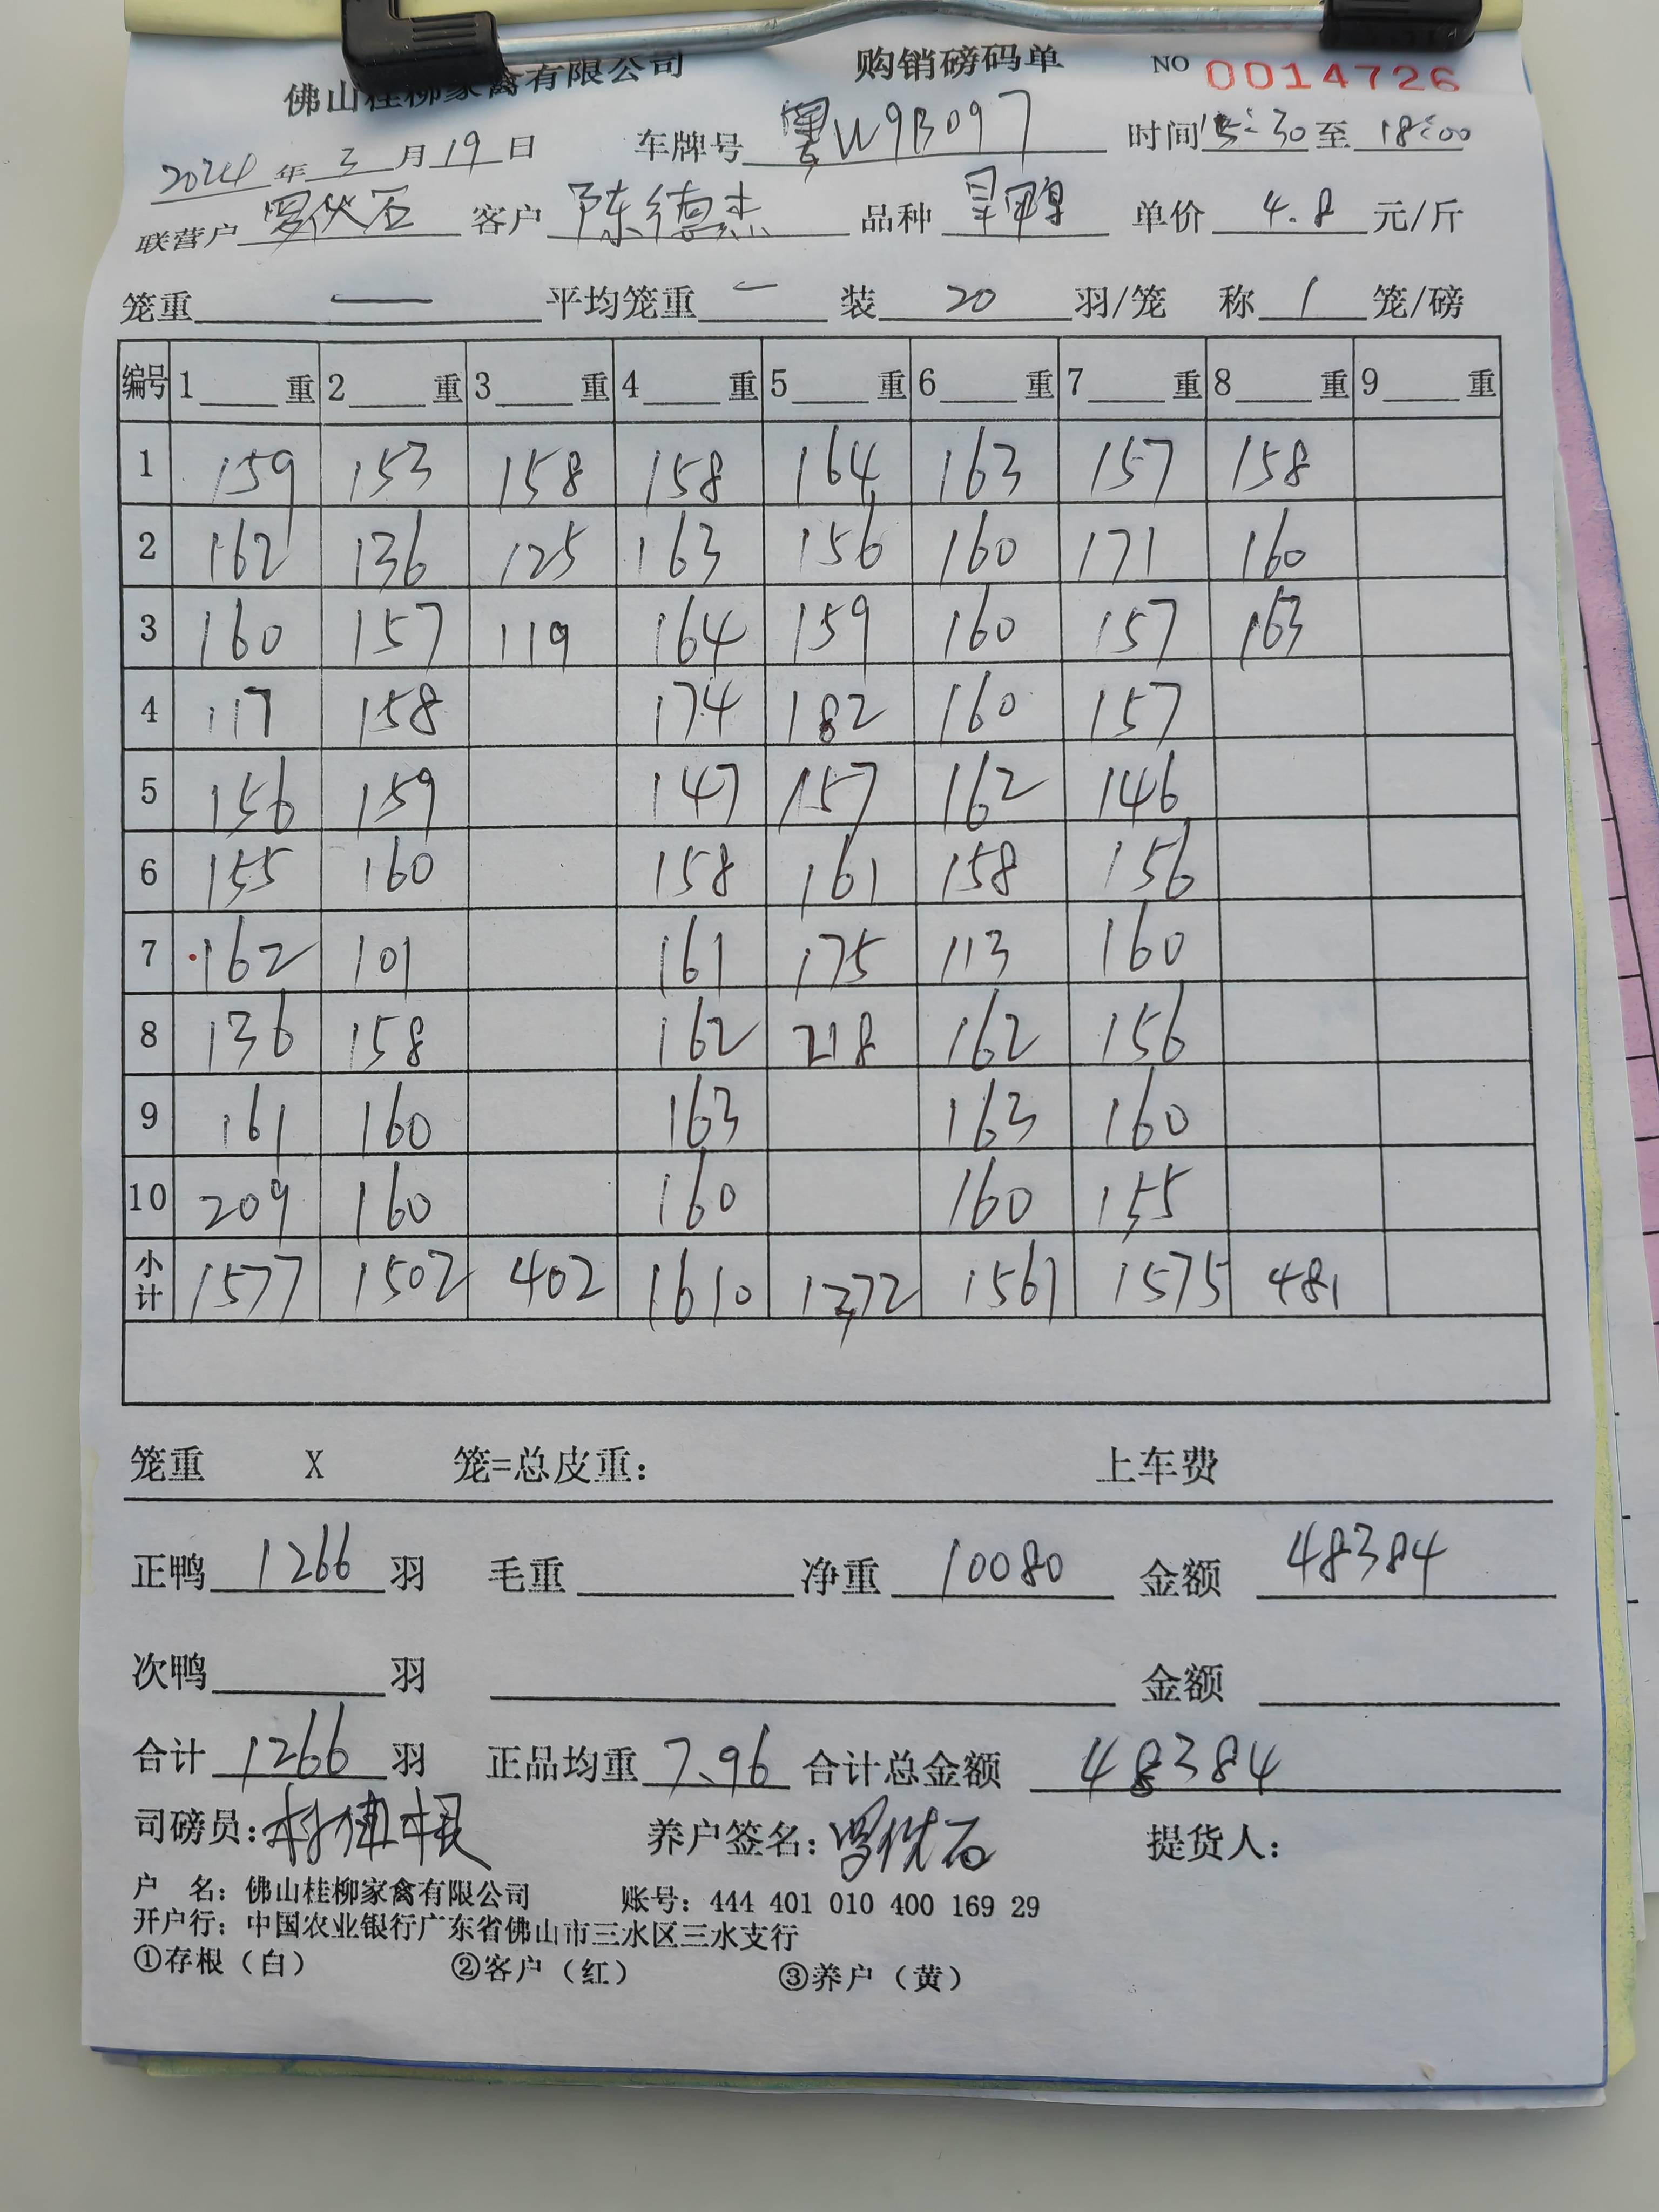 佛山桂柳家禽有限公司 购销磅码单 NO 0014726
2024年3月19日 车牌号 粤W9B097 时间 15:30至18:00
联营户 罗伙石 客户 陈德杰 品种 旱鸭 单价 4.8 元/斤
笼重 — 平均笼重 — 装 20 羽/笼 称 1 笼/磅
编号 1 重 2 重 3 重 4 重 5 重 6 重 7 重 8 重 9 重
1 159 153 158 158 164 163 157 158
2 162 136 125 163 156 160 171 160
3 160 157 119 164 159 160 157 163
4 117 158 174 182 160 157
5 156 159 147 157 162 146
6 155 160 158 161 158 156
7 162 101 161 175 113 160
8 136 158 162 218 162 156
9 161 160 163 163 160
10 209 160 160 160 155
小计 1577 1502 402 1610 1372 1561 1575 481
笼重 X 笼=总皮重: 上车费
正鸭 1266 羽 毛重 净重 10080 金额 48384
次鸭 羽 金额
合计 1266 羽 正品均重 7.96 合计总金额 48384
司磅员: 养户签名: 提货人:
户 名: 佛山桂柳家禽有限公司 账号: 444 401 010 400 169 29
开户行: 中国农业银行广东省佛山市三水区三水支行
①存根（白） ②客户（红） ③养户（黄）